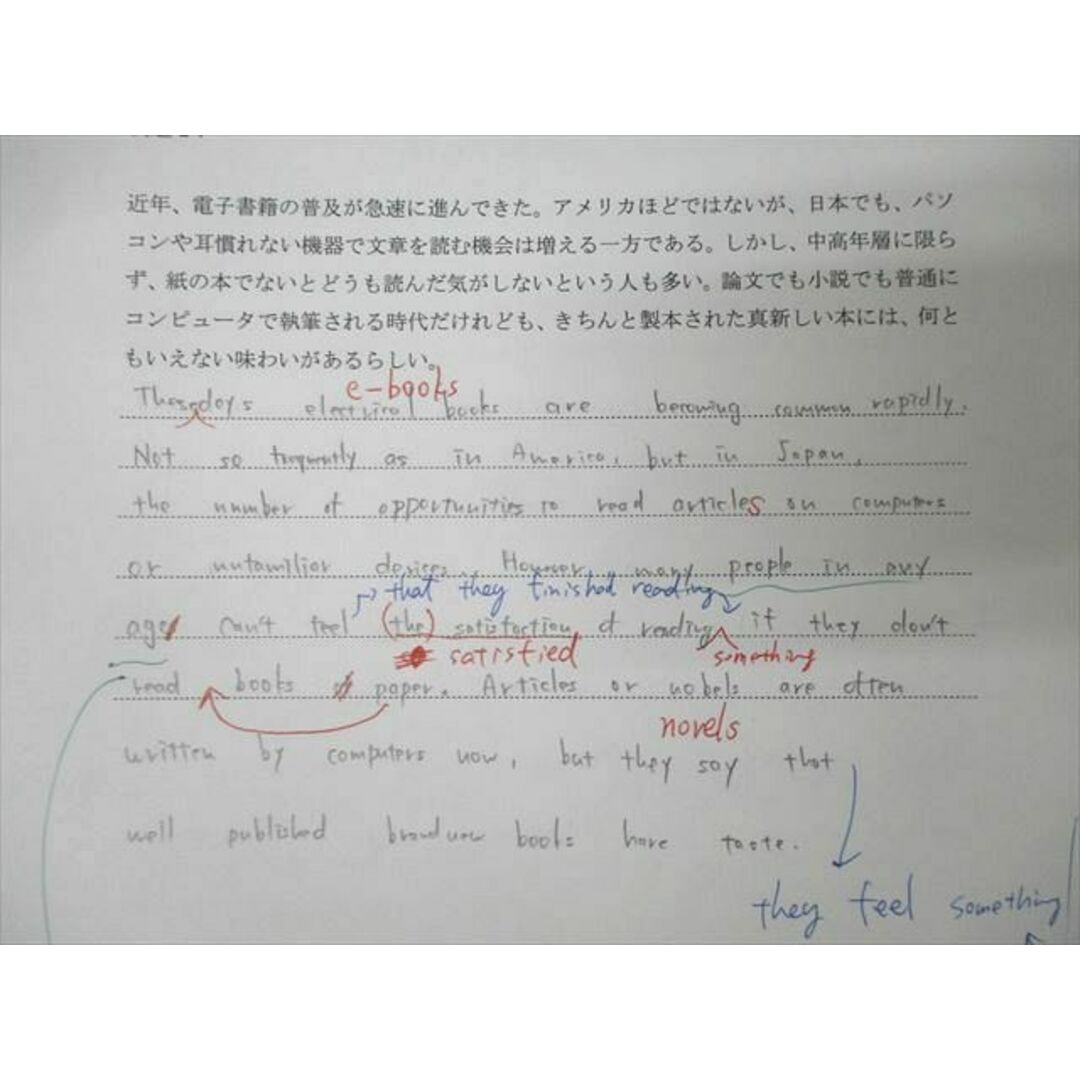 近年、電子書籍の普及が急速に進んできた。アメリカほどではないが、日本でも、パソ
コンや耳慣れない機器で文章を読む機会は増える一方である。しかし、中高年層に限ら
ず、紙の本でないとどうも読んだ気がしないという人も多い。論文でも小説でも普通に
コンピュータで執筆される時代だけれども、きちんと製本された真新しい本には、何と
もいえない味わいがあるらしい。
e-books
These days electrical books are becoming common rapidly.
Not so frequently as in America, but in Japan,
the number of opportunities to read articles on computers
or unfamiliar devices. However many people in any
that they finished reading
age can't feel (the) satisfaction of reading if they don't
satisfied something
read books paper. Articles or nobels are often
novels
written by computers now, but they say that
well published brandnew books have taste.
they feel something